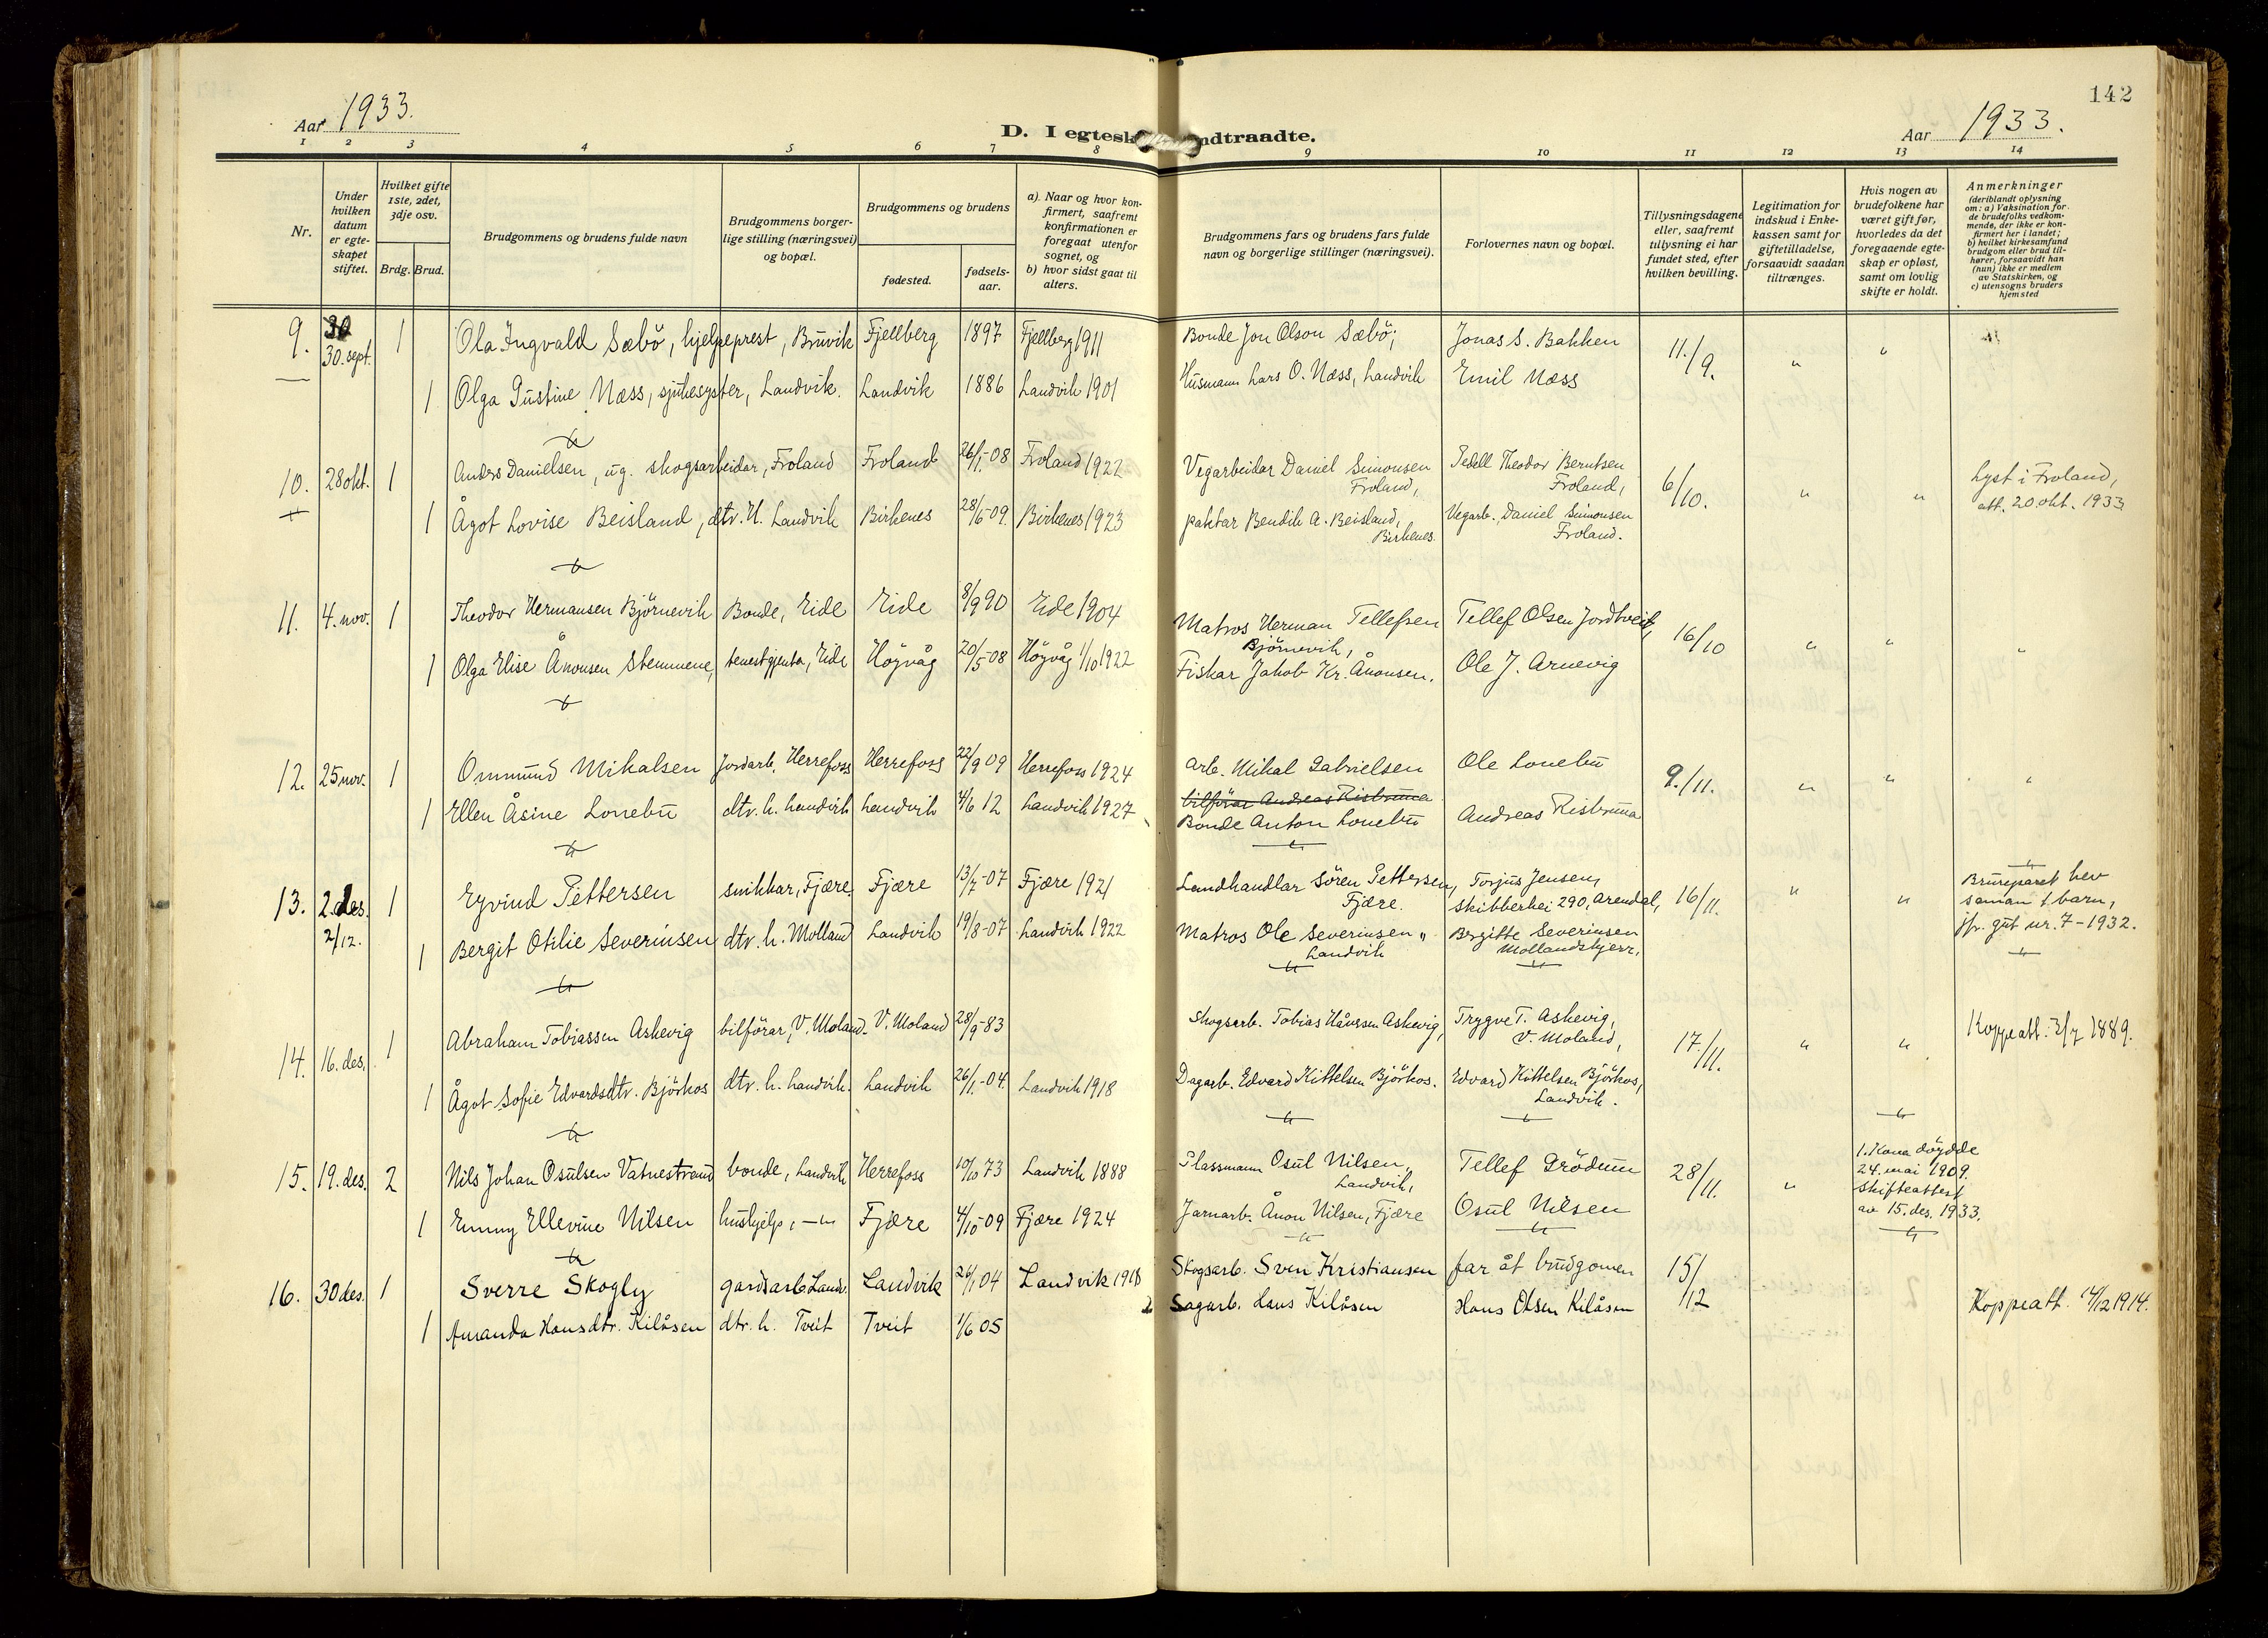 142
Aar 1933.
D. I egtesk ndtraadte.
Aar 1933.
1 2 3 4 5 6 7 8 9 10 11 12 13 14
Nr.
Under hvilken datum er egte-skapet stiftet.
Hvilket gifte 1ste, 2det, 3dje osv.
Brdg. Brud.
Brudgommens og brudens fulde navn
Brudgommens borger-lige stilling (næringsvei) og bopæl.
Brudgommens og brudens
fødested.
fødsels-aar.
a) Naar og hvor kon-firmert, saafremt konfirmationen er foregaat utenfor sognet, og
b) hvor sidst gaat til alters.
Brudgommens fars og brudens fars fulde navn og borgerlige stillinger (næringsvei).
Forlovernes navn og bopæl.
Tillysningsdagene eller, saafremt tillysning ei har fundet sted, efter hvilken bevilling.
Legitimation for indskud i Enke-kassen samt for giftetilladelse, forsaavidt saadan tiltrænges.
Hvis nogen av brudefolkene har været gift før, hvorledes da det foregaaende egte-skap er opløst, samt om lovlig skifte er holdt.
Anmerkninger
(deriblandt oplysning om: a) Vaksination for de brudefolks vedkom-mende, der ikke er kon-firmert her i landet; b) hvilket kirkesamfund brudgom eller brud til-hører, forsaavidt han (hun) ikke er medlem av Statskirken, og c) utensogns bruders hjemsted
9. 30 30. sept. 1 Ola Ingvald Sæbö, hjelpeprest, Bruvik Fjellberg 1897 Fjellberg 1911 Bonde Jon Olson Sæbö; Jonas S. Bakken 11./9. " "
1 Olga Gustine Næss, sjukesyster, Landvik. Landvik 1886 Landvik 1901 Husmann Lars O. Næss, Landvik Emil Næss
10. 28 okt. 1 Anders Danielsen, ug. skogsarbeidar, Froland Froland 26/1-08 Froland 1922 Vegarbeidar Daniel Simonsen Froland, Pedell Theodor Berntsen Froland, 6/10. " " Lyst i Froland, att. 20. okt. 1933
1 Ågot Lovise Beisland, dtr. H. Landvik Birkenes 28/6-09. Birkenes 1923 paktar Bendik A. Beisland, Birkenes. Vegarb. Daniel Simonsen Froland.
11. 4. nov. 1 Theodor Hermansen Björnevik Bonde, Eide Eide 8/9 90 Eide 1904 Matros Herman Tellefsen Björnevik, Tellef Olsen Jordtveit, 16/10 " " "
1 Olga Elise Ånonsen Stemmene, tenestgjenta, Eide Högvåg 20/5-08 Högvåg 1/10 1922 Fiskar Jakob Kr. Ånonsen. Ole J. Arnevig
12. 25 nov. 1 Ommund Mikalsen Jordarb. Herrefoss Herrefoss 22/9 09 Herrefoss 1924 Arb. Mikal Gabrielsen Ole Lonebu 9./11. " " "
1 Ellen Åsine Lonebu dtr. h. Landvik Landvik 4/6 12 Landvik 1927 bilförar Andreas Risbruna
Bonde Anton Lonebu Andreas Risbruna
13. 2. des. 2/12. 1 Eyvind Pettersen snikkar, Fjære. Fjære 13/7-07 Fjære 1921 Landhandlar Sören Pettersen, Fjære. Torjus Jensen, Skibberhei 290, Arendal, 16/11. " " Brureparet hev saman 1 barn, jfr. gut nr. 7-1932.
1 Bergit Otilie Severinsen dtr. h. Molland Landvik 19/8-07 Landvik 1922 Matros Ole Severinsen " Landvik Bergitte Severinsen Mollandskjerr.
14. 16. des. 1 Abraham Tobiassen Askevig bilförar, V. Moland. V. Moland 28/9-83 Skogsarb. Tobias Hånssen Askevig, Trygve T. Askevig, V. Moland, 17./11. " " Koppeatt. 2/7 1889.
1 Ågot Sofie Edvardsdtr. Björkos dtr. h. Landvik. Landvik 26/1-04. Landvik 1918 Dagarb. Edvard Kittelsen Björkos. Edvard Kittelsen Björkos, Landvik.
15. 19. des. 2 Nils Johan Osulsen Vatnestrand bonde, Landvik Herrefoss 10/10 73 Landvik 1888 Plassmann Osul Nilsen, Landvik, Tellef Grödum 28/11. " 1. Kona döydde 24. mai 1909. Skifteattest av 15. des. 1933.
1 Emmy Ellevine Nilsen hushjelp, -"- Fjære 4/10-09 Fjære 1924 Jarnarb. Ånon Nilsen, Fjære Osul Nilsen
16. 30 des. 1 Sverre Skogly gardsarb Landv. Landvik 24/1 04 Landvik 1918 Skogsarb. Sven Kristiansen far åt brudgomen 15/12
1 Amanda Hansdtr. Kilåsen dtr. h. Tveit Tveit 1/6 05 Sagarb. Hans Kilåsen Hans Olsen Kilåsen Koppeatt. 14/12 1914.